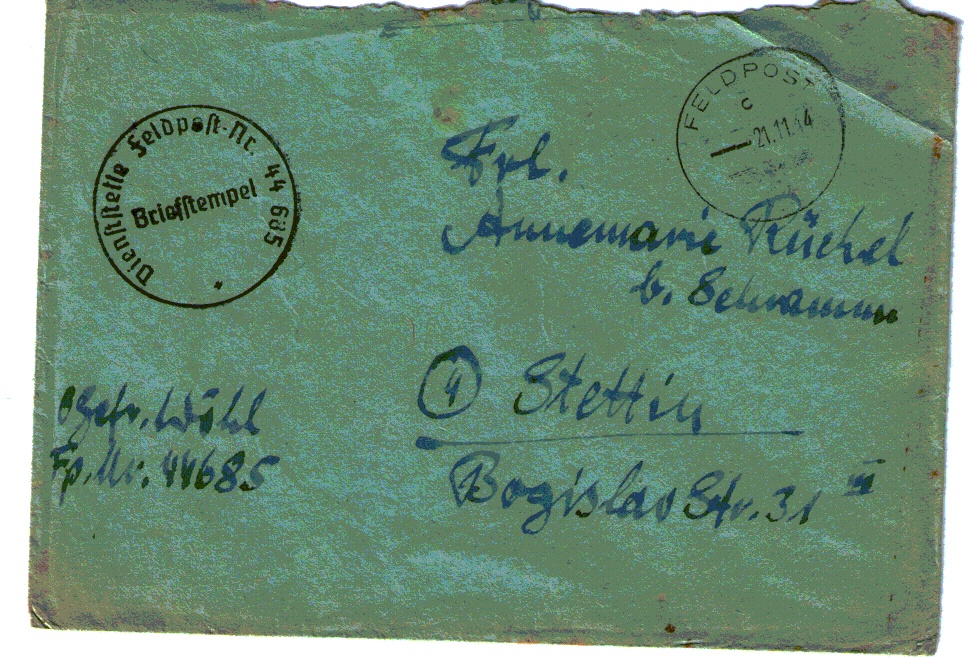 Dienststelle Feldpost-Nr. 44 685
Briefstempel
FELDPOST
c
21.11.44
Frl.
Annemarie Rüchel
b. Schramm
4 Stettin
Bogislav Str. 31 III
OGefr. Wöhl
Fp. Nr. 44685